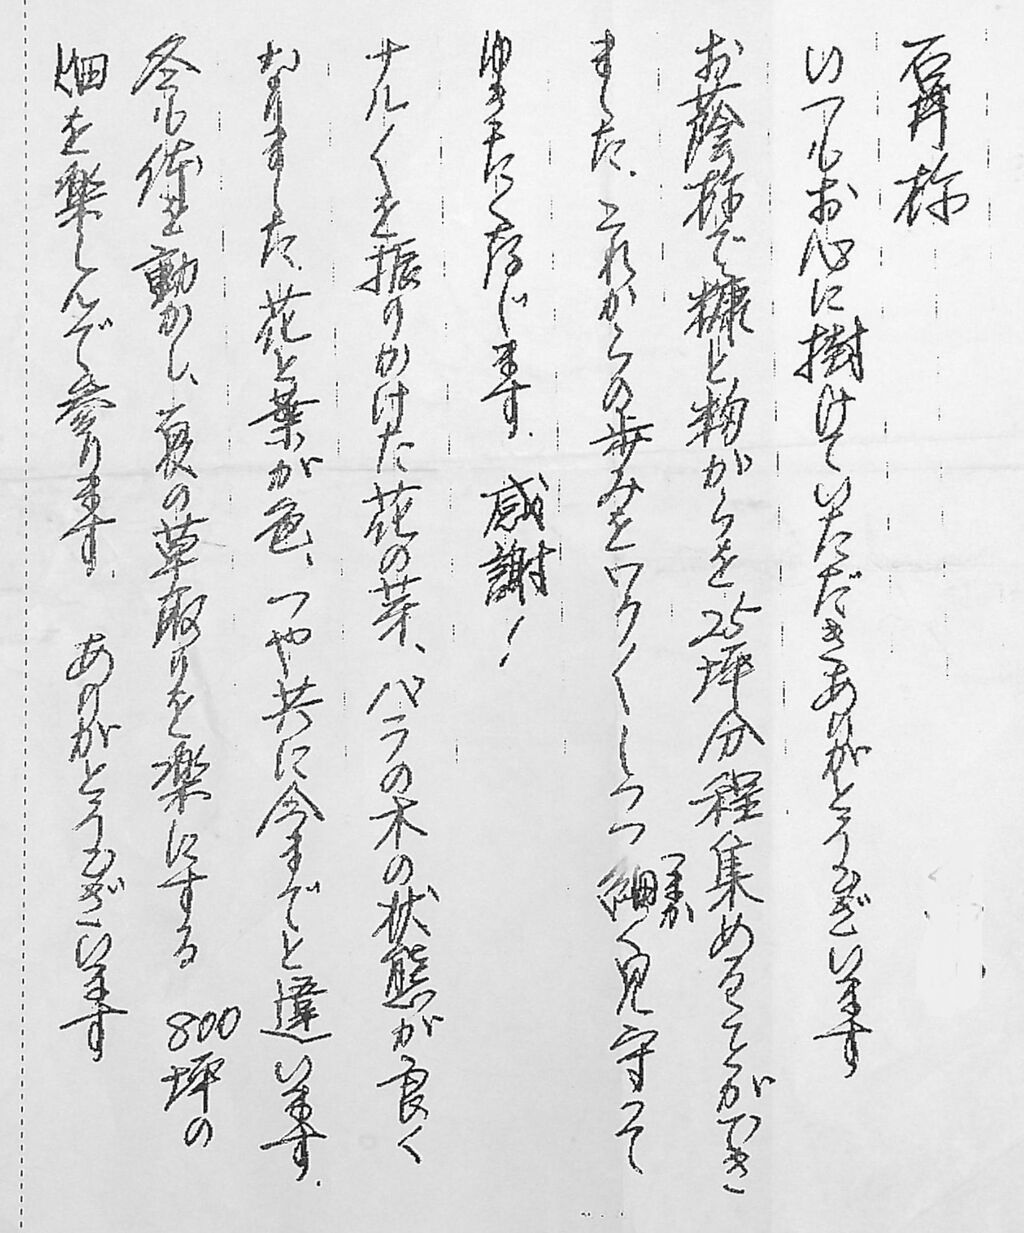 石井様
いつもお心に掛けていただきありがとうございます
お蔭様で糠と籾がらを25坪分程集めることができ
ました、これからの歩みをワクワクしつつ細(つまか)く見守って
ゆきたく存じます。感謝!
ナルくを振りかけた花の芽、バラの木の状態が良く
なりました、花と葉が色、つや共に今までと違います。
冬も体を動かし、夏の草取りを楽にする 800坪の
畑を楽しんで参ります ありがとうございます